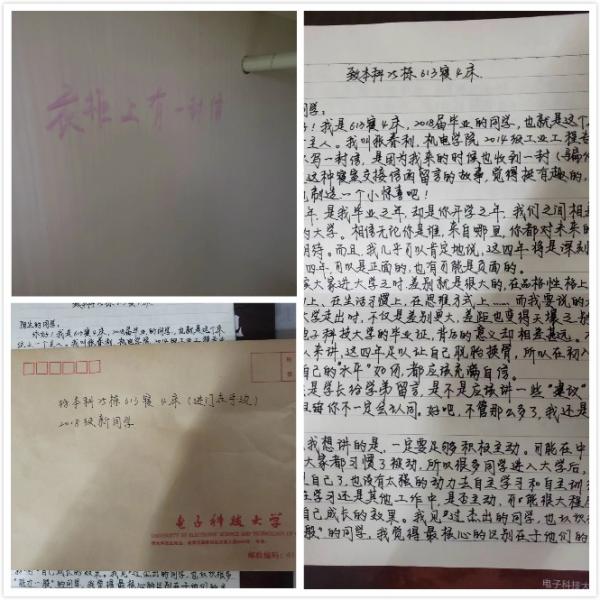 衣柜上有一封信
致本科25栋613寝4床
同学：
！我是613寝4床，2018届毕业的同学，也就是这个
主人。我叫张春利，机电学院2014级工业工程专
写一封信，是因为我来的时候也收到一封
这种寝室交接信函留言的故事，觉得挺有趣的，
也制造一个小惊喜吧！
年，是我毕业之年，却是你开学之年，我们之间相差
的大学。相信无论你是谁，来自哪里，你都对未来的
期待。而且，我几乎可以肯定地说，这四年将是深刻
四年，可以是正面的，也有可能是负面的。
大家进大学之时，差别就是很大的，在品格性格上
上，在生活习惯上，在思维方式上……而我要说的
大学走出时，不仅是差别更大，差距也变得天壤之别
电子科技大学的毕业证，背后的意义却相差甚远。
人来讲，这四年足以让自己脱胎换骨，所以在初入
自己的水平"如何，都应该充满自信。
是学长给学弟留言，是不是应该讲一些"建议"
但你不一定会认同。好吧，不管那么多了，我还是
我想讲的是，一定要足够积极主动。可能在中
大家都习惯了被动，所以很多同学进入大学后，
自己了，也没有太强的动力去自主学习和自主训
在学习还是其他工作中，是否主动，可能很大程
自己成长的效果。我见过杰出的同学，也认识
般"的同学，我觉得最核心的区别在于他们的
陌生的同学：
你好！我是613寝4床，2018届毕业的同学，也就是这个床
致本科25栋613寝4床（进门左手边）
2018级新同学
电子科技大学
UNIVERSITY OF ELECTRONIC SCIENCE AND TECHNOLOGY OF
邮政编码：61
自己成长的效果。我见过杰出的同学，也认识很多
"能力一般"的同学，我觉得最核心的区别在于他们的
电子科技大